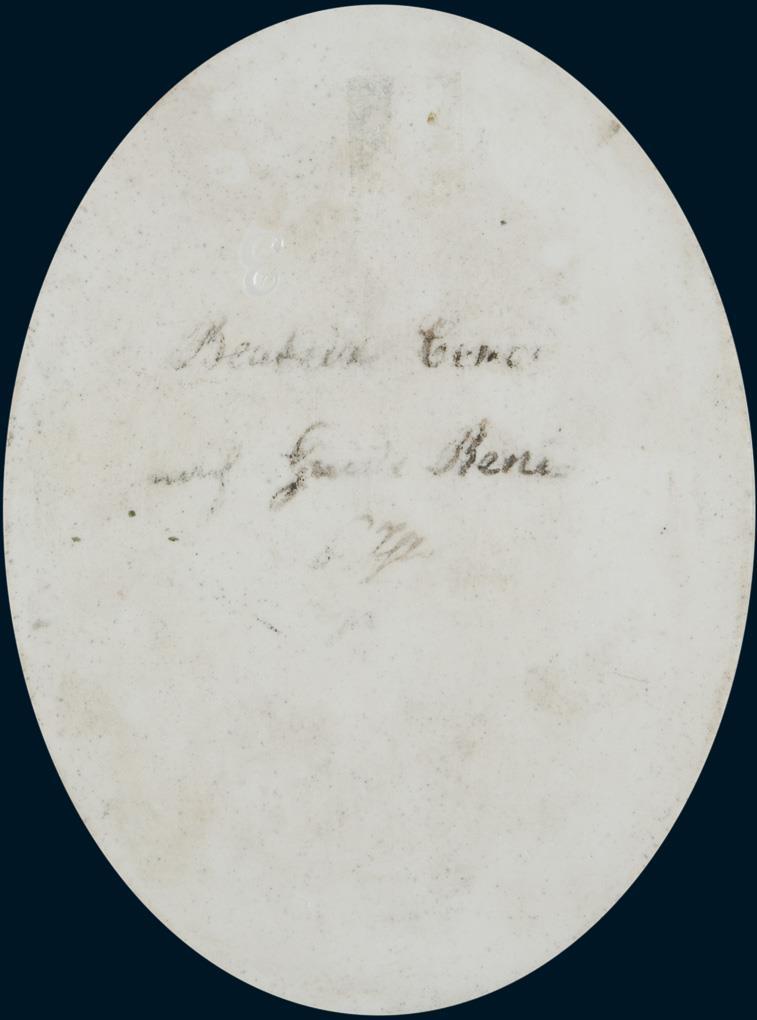 E
Beatrice Cenci
nach Guido Reni